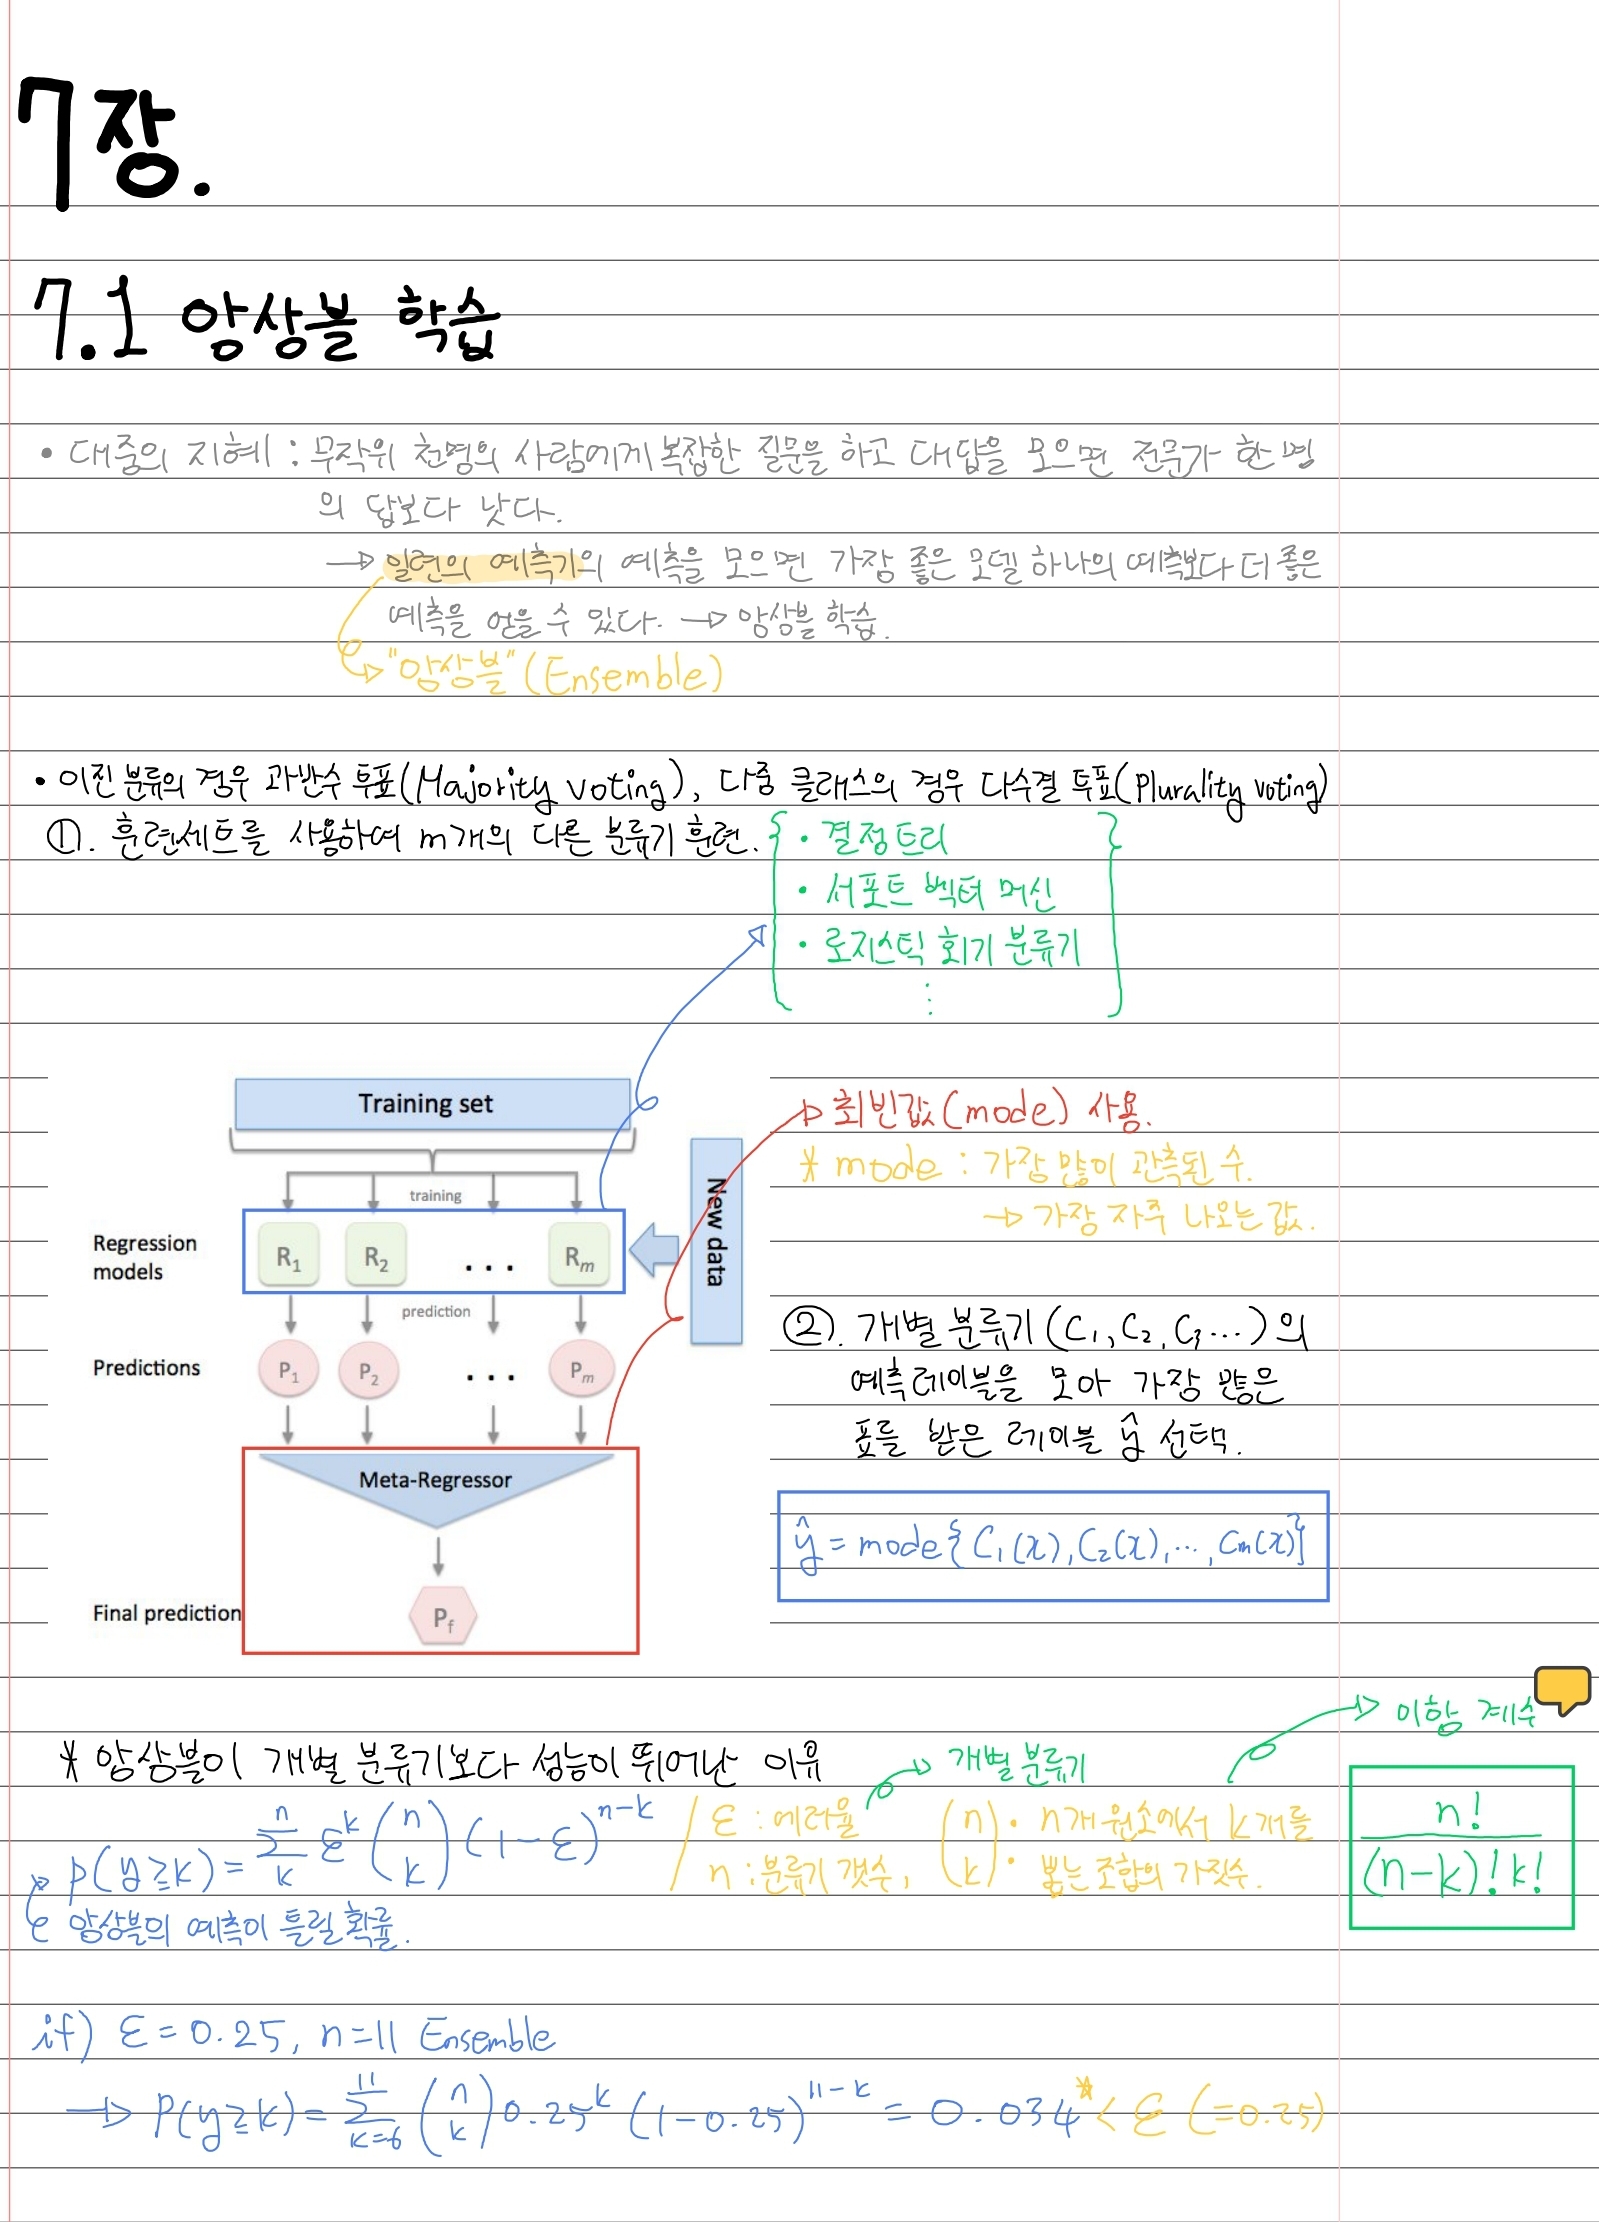 7장.
7.1 앙상블 학습
• 대중의 지혜 : 무작위 천명의 사람에게 복잡한 질문을 하고 대답을 모으면 전문가 한 명
의 답보다 낫다.
→ 일련의 예측기의 예측을 모으면 가장 좋은 모델 하나의 예측보다 더 좋은
예측을 얻을 수 있다. → 앙상블 학습.
"앙상블" (Ensemble)
• 이진 분류의 경우 과반수 투표(Majority voting), 다중 클래스의 경우 다수결 투표(Plurality voting)
①. 훈련세트를 사용하여 m개의 다른 분류기 훈련.
• 결정트리
• 서포트 벡터 머신
• 로지스틱 회기 분류기
⋮
Training set
training
New data
Regression models
R₁ R₂ ... Rₘ
prediction
Predictions
P₁ P₂ ... Pₘ
Meta-Regressor
Final prediction
P_f
→ 최빈값(mode) 사용.
* mode : 가장 많이 관측된 수.
→ 가장 자주 나오는 값.
②. 개별 분류기 (C₁, C₂, C₃ ...) 의
예측 레이블을 모아 가장 많은
표를 받은 레이블 ŷ 선택.
ŷ = mode{C₁(x), C₂(x), ..., Cm(x)}
→ 이항 계수
* 앙상블이 개별 분류기보다 성능이 뛰어난 이유
→ 개별 분류기
P(y≥k) = Σ_k^n ε^k (n k) (1-ε)^(n-k)
ε : 에러율
n : 분류기 갯수,
(n k) : n개 원소에서 k개를
뽑는 조합의 가짓수.
n! / (n-k)! k!
앙상블의 예측이 틀릴 확률.
if) ε = 0.25, n=11 Ensemble
→ P(y≥k) = Σ_(k=6)^11 (n k) 0.25^k (1-0.25)^(11-k) = 0.034* < ε (=0.25)